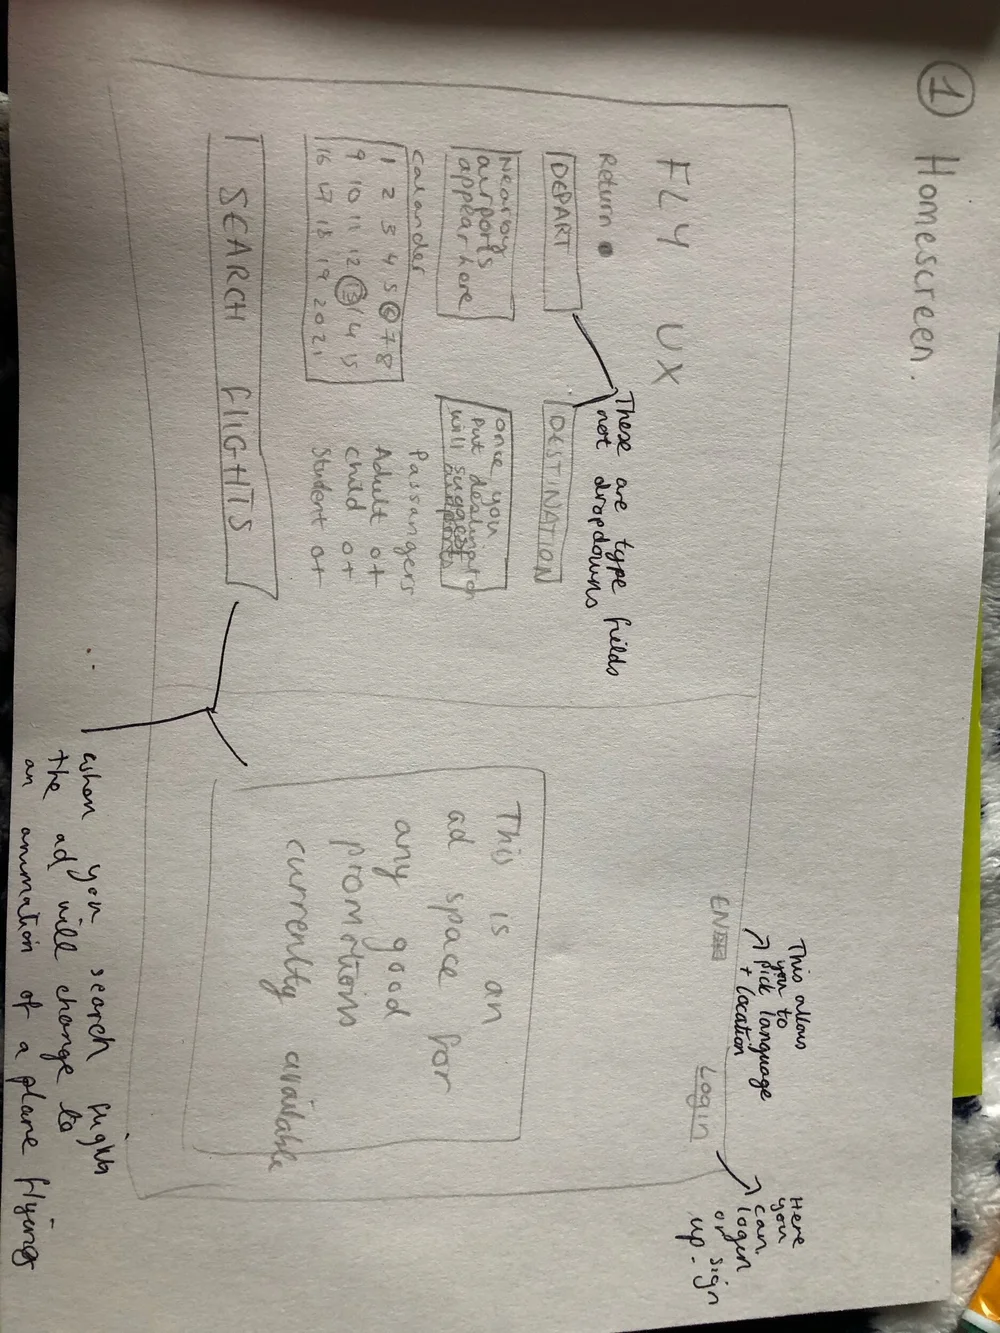 1 Homescreen.
This allows
you to
pick language
+ location
Here
you
can
login
or sign
up.
FLY UX
EN
Login
Return
These are type fields
not dropdowns
DEPART
DESTINATION
Nearby
airports
appear here
once you
put
will suggest
Calander
1 2 3 4 5 6 7 8
9 10 11 12 13 14 15
16 17 18 19 20 21
Passangers
Adult 0+
child 0+
Student 0+
SEARCH FlIGHTS
This is an
ad space for
any good
promotions
currently available
when you search flights
the ad will change to
an animation of a plane flying